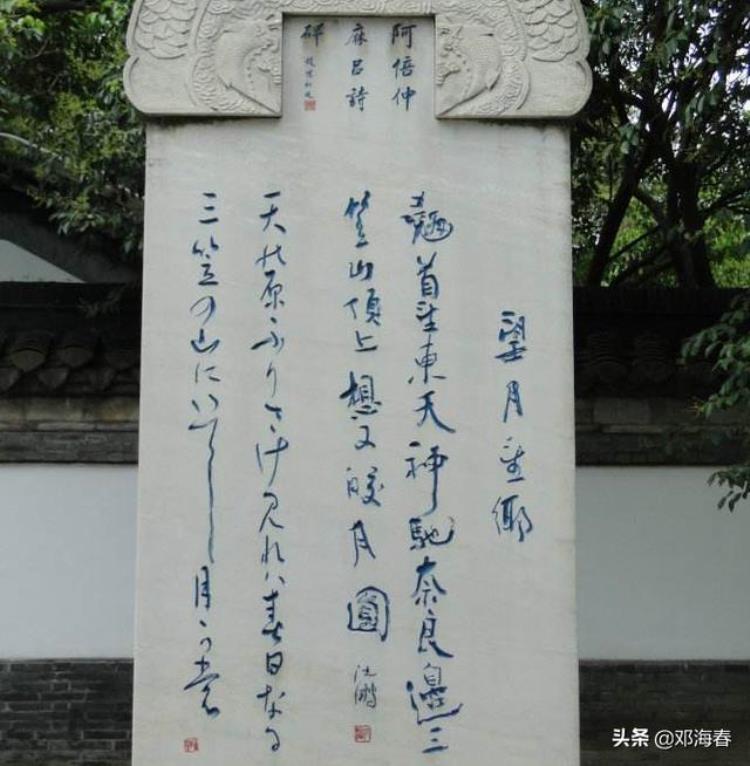 阿倍仲
麻呂詩
碑
望月望鄉
翹首望東天神馳奈良邊三
笠山頂上想又皎月圓
江鵬
天の原ふりさけ見れハ春日なる
三笠の山にいてし月かも
头条 @邓海春